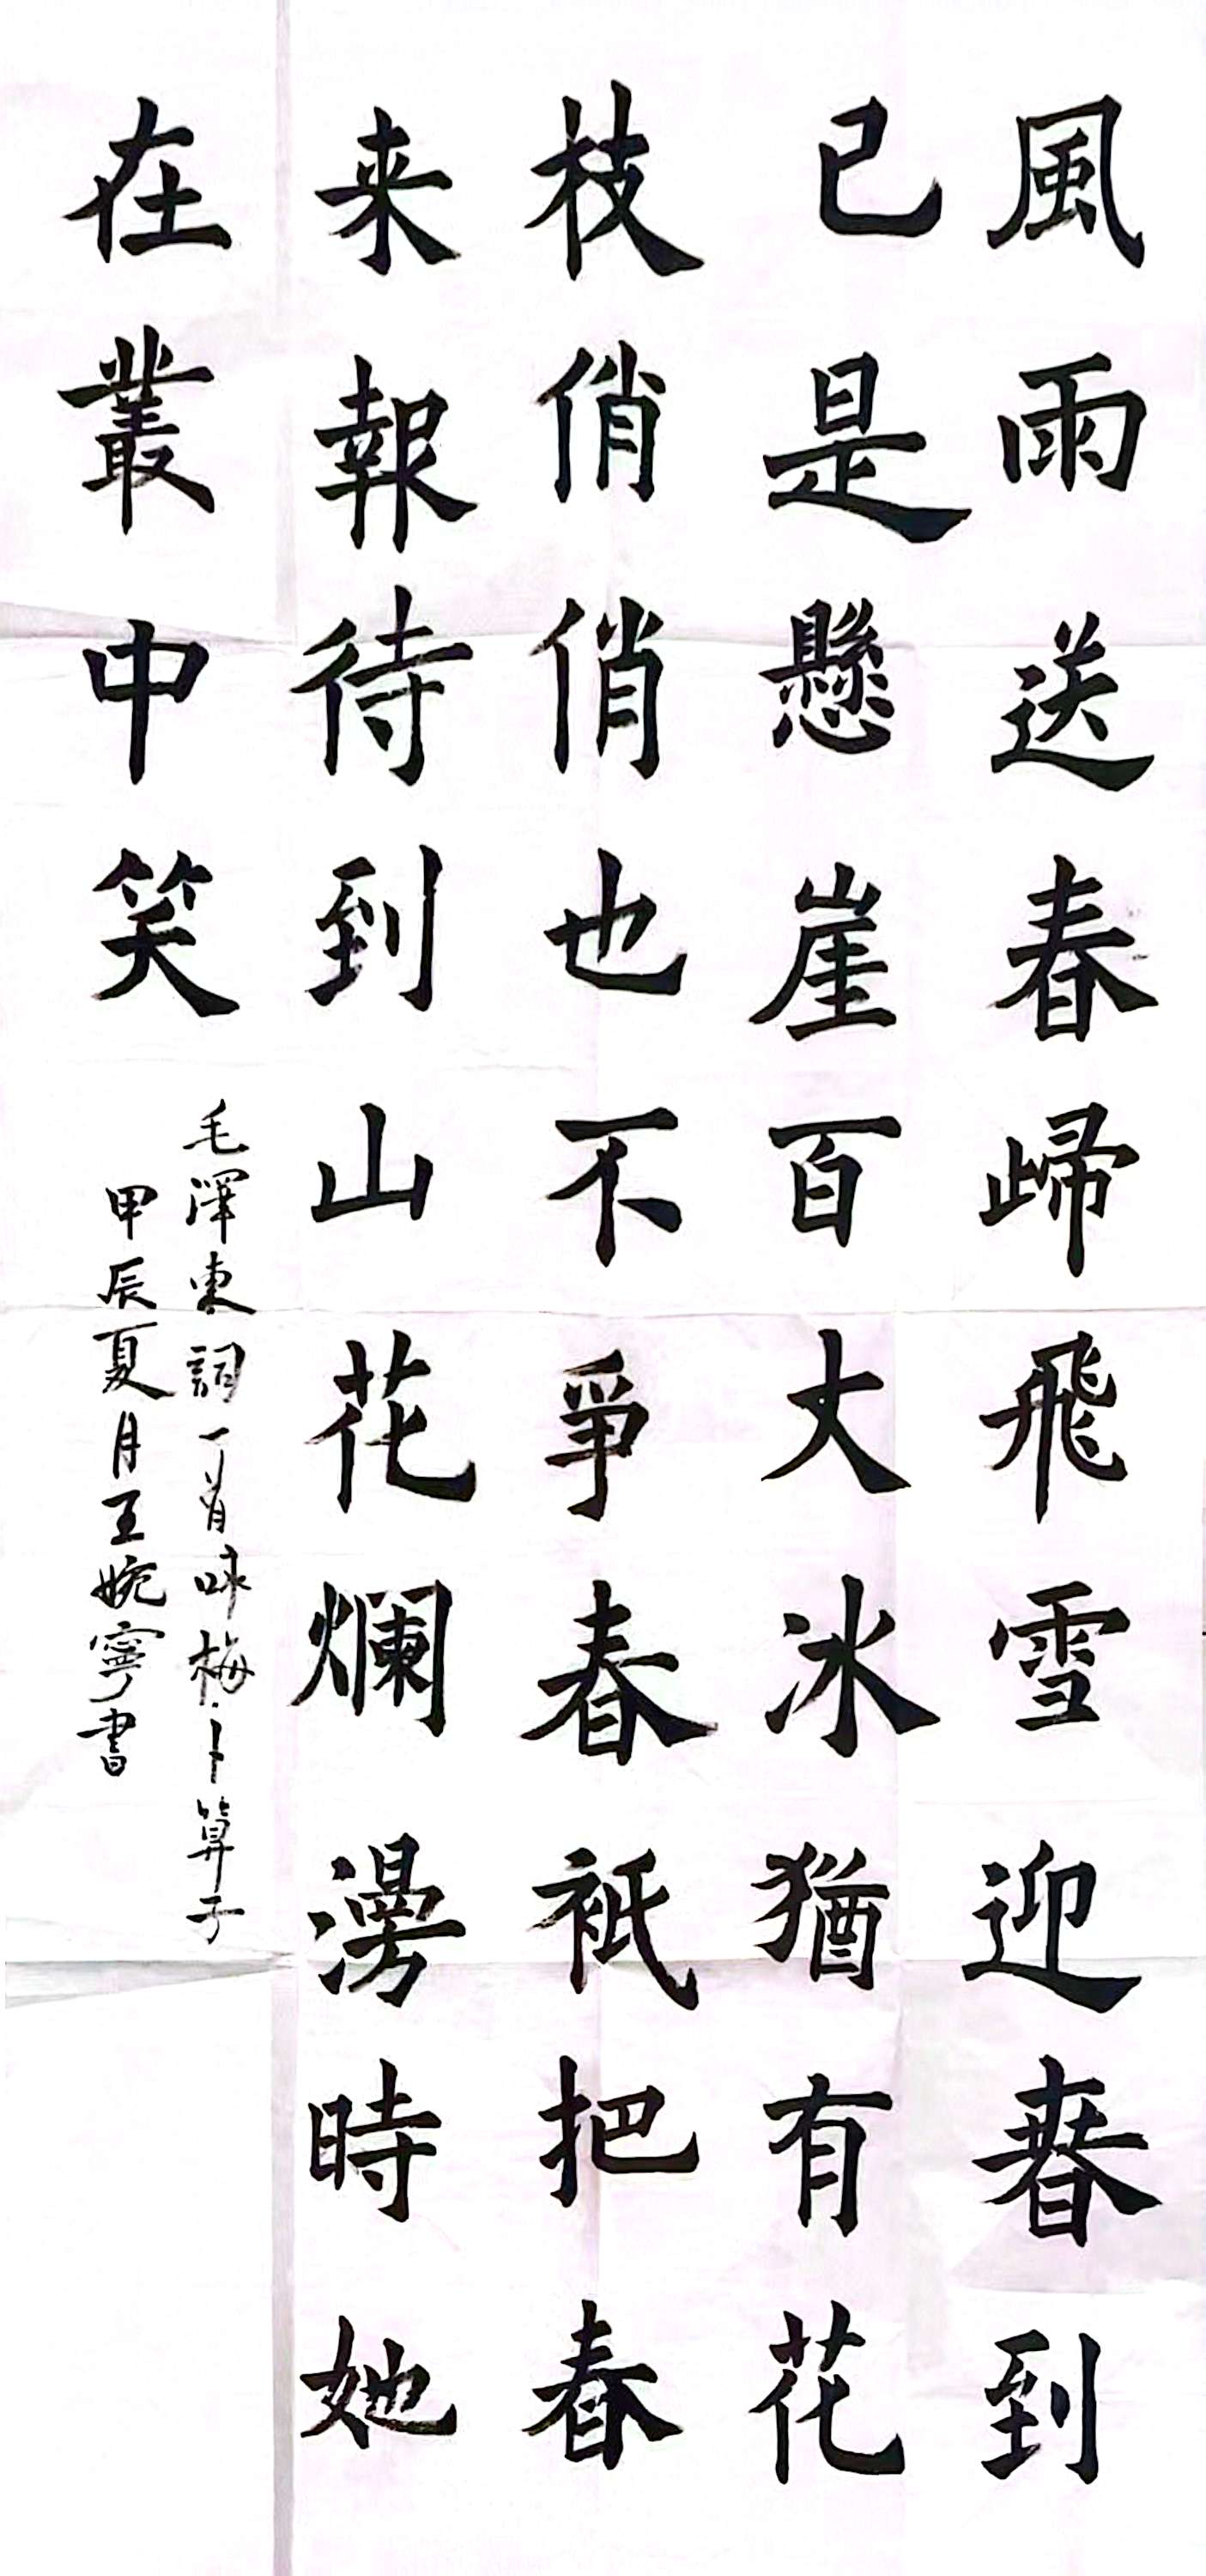 風雨送春歸飛雪迎春到
已是懸崖百丈冰猶有花
枝俏俏也不爭春衹把春
来報待到山花爛漫時她
在叢中笑
毛澤東詞一首咏梅卜算子
甲辰夏月王婉寧書